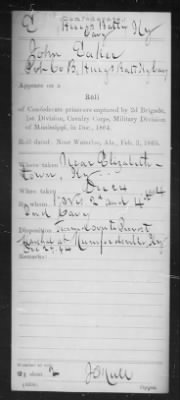 Confederate
C Hueys Battn Ky
Cav
John Eaker
Pvt Co B, Hueys Batt Ky Cav
Appears on a
Roll
of Confederate prisoners captured by 2d Brigade,
1st Division, Cavalry Corps, Military Division
of Mississippi, in Dec., 1864.
Roll dated: Near Waterloo, Ala., Feb. 3, 1865.
Where taken Near Elizabeth-
town, Ky
When taken Dec 24 1864
By whom 2d and 4th
Ind Cavy
Disposition
Marshal at Munfordville, Ky
Remarks:
Number of roll:
sheet
Copyist.